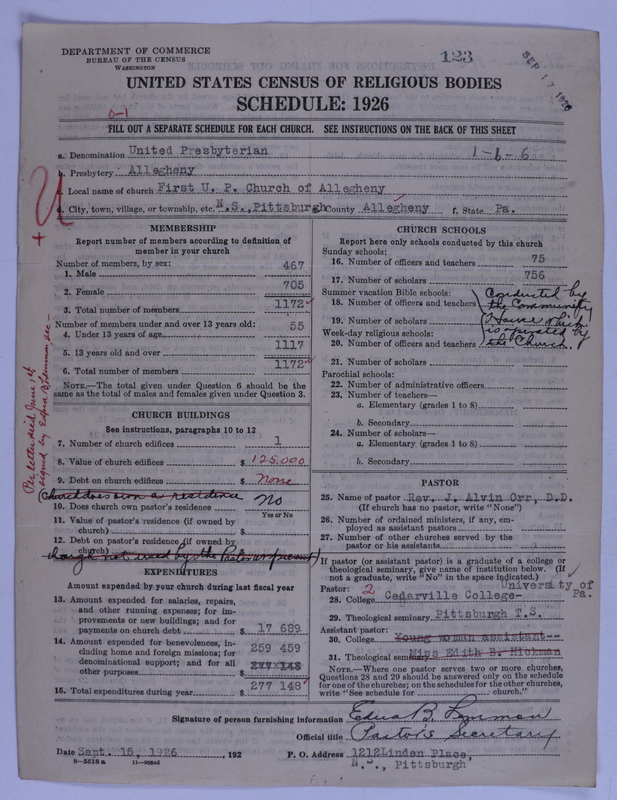 DEPARTMENT OF COMMERCE
BUREAU OF THE CENSUS
WASHINGTON
123
SEP 17 1926
UNITED STATES CENSUS OF RELIGIOUS BODIES
SCHEDULE: 1926
0-1
FILL OUT A SEPARATE SCHEDULE FOR EACH CHURCH. SEE INSTRUCTIONS ON THE BACK OF THIS SHEET
a. Denomination United Presbyterian 1-6-6
b. Presbytery Allegheny
c. Local name of church First U. P. Church of Allegheny
d. City, town, village, or township, etc. N.S., Pittsburgh County Allegheny f. State Pa.
MEMBERSHIP
Report number of members according to definition of
member in your church
Number of members, by sex:
1. Male 467
2. Female 705
3. Total number of members 1172
Number of members under and over 13 years old:
4. Under 13 years of age 55
5. 13 years old and over 1117
6. Total number of members 1172
NOTE.—The total given under Question 6 should be the
same as the total of males and females given under Question 3.
CHURCH BUILDINGS
See instructions, paragraphs 10 to 12
7. Number of church edifices 1
8. Value of church edifices $125,000
9. Debt on church edifices $ None
(Church does own a residence
10. Does church own pastor's residence No
Yes or No
11. Value of pastor's residence (if owned by
church) $
12. Debt on pastor's residence (if owned by
church) $
though not used by the Pastor at present)
EXPENDITURES
Amount expended by your church during last fiscal year
13. Amount expended for salaries, repairs,
and other running expenses; for im-
provements or new buildings; and for
payments on church debt $ 17 689
14. Amount expended for benevolences, in-
cluding home and foreign missions; for
denominational support; and for all
other purposes $ 259 459
277 148
15. Total expenditures during year $ 277 148
CHURCH SCHOOLS
Report here only schools conducted by this church
Sunday schools:
16. Number of officers and teachers 75
17. Number of scholars 756
Summer vacation Bible schools:
18. Number of officers and teachers
19. Number of scholars
Week-day religious schools:
20. Number of officers and teachers
21. Number of scholars
Conducted by
the Community
House which
is operated by
the Church.
Parochial schools:
22. Number of administrative officers
23. Number of teachers—
a. Elementary (grades 1 to 8)
b. Secondary
24. Number of scholars—
a. Elementary (grades 1 to 8)
b. Secondary
PASTOR
25. Name of pastor Rev. J. Alvin Orr, D.D.
(If church has no pastor, write "None")
26. Number of ordained ministers, if any, em-
ployed as assistant pastors
27. Number of other churches served by the
pastor or his assistants
If pastor (or assistant pastor) is a graduate of a college or
theological seminary, give name of institution below. (If
not a graduate, write "No" in the space indicated.)
Pastor: 2 University of
28. College Cedarville College- Pa.
29. Theological seminary Pittsburgh T.S.
Assistant pastor:
30. College Young woman assistant--
31. Theological seminary Miss Edith B. Hickman
NOTE.—Where one pastor serves two or more churches,
Questions 28 and 29 should be answered only on the schedule
for one of the churches; on the schedules for the other churches,
write "See schedule for church."
Signature of person furnishing information Edna B.
Official title Pastor's Secretary
Date Sept. 15, 1926, 192
P. O. Address 1212 Linden Place,
N.S., Pittsburgh
8—5518 a